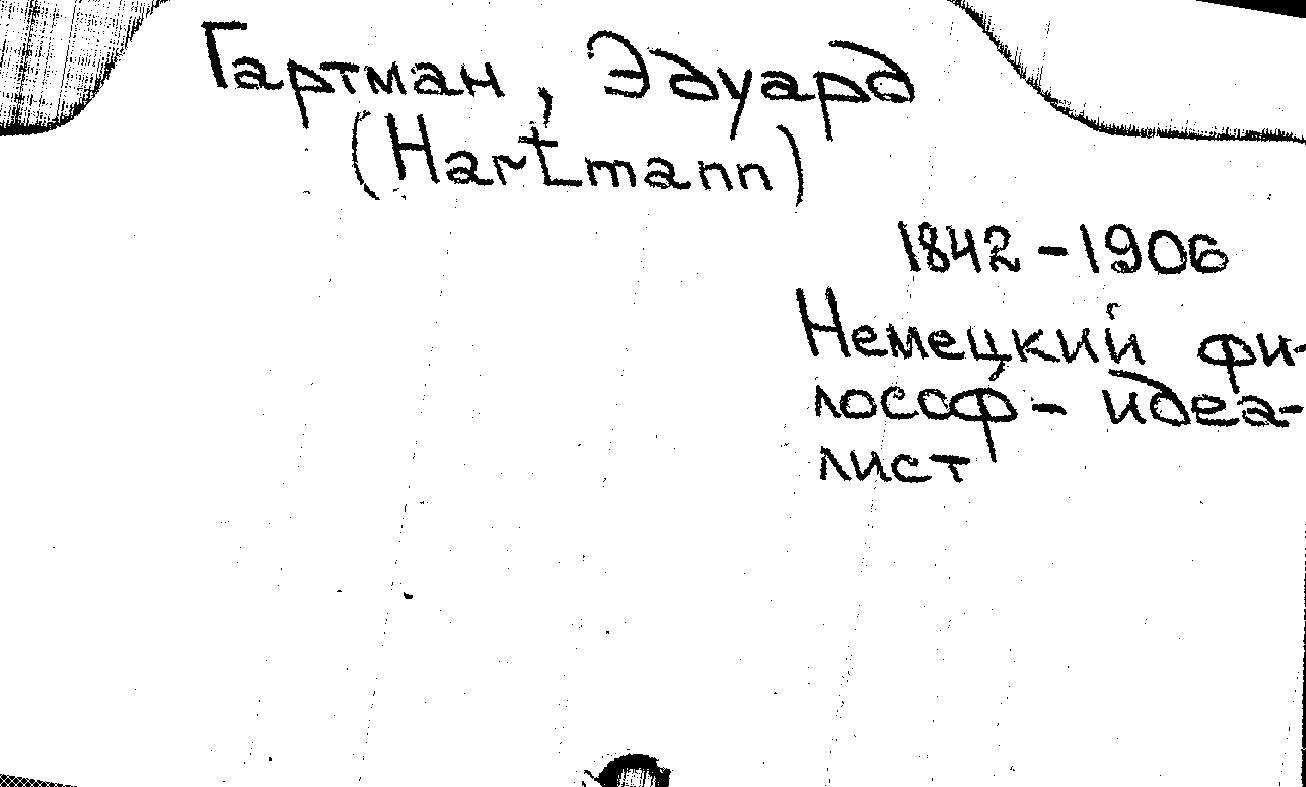 Гартман, Эдуард
(Hartmann)
1842-1906
Немецкий фи-
лософ-идеа-
лист